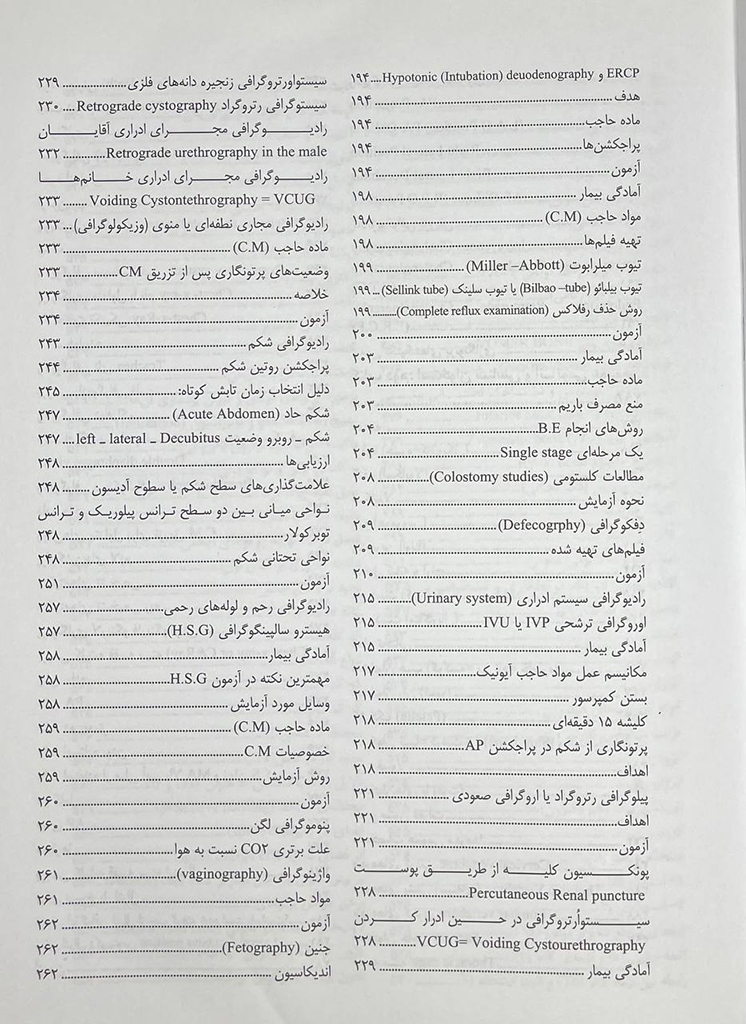 ERCP و Hypotonic (Intubation) deuodenography....۱۹۴
هدف....۱۹۴
ماده حاجب....۱۹۴
پراجکشن‌ها....۱۹۴
آزمون....۱۹۴
آمادگی بیمار....۱۹۸
مواد حاجب (C.M)....۱۹۸
تهیه فیلم‌ها....۱۹۸
تیوب میلرابوت (Miller –Abbott)....۱۹۹
تیوب بیلبائو (Bilbao –tube) یا تیوب سلینک (Sellink tube)....۱۹۹
روش حذف رفلاکس (Complete reflux examination)....۱۹۹
آزمون....۲۰۰
آمادگی بیمار....۲۰۳
ماده حاجب....۲۰۳
منع مصرف باریم....۲۰۳
روش‌های انجام B.E....۲۰۴
یک مرحله‌ای Single stage....۲۰۴
مطالعات کلستومی (Colostomy studies)....۲۰۸
نحوه آزمایش....۲۰۸
دِفکوگرافی (Defecogrphy)....۲۰۹
فیلم‌های تهیه شده....۲۰۹
آزمون....۲۱۰
رادیوگرافی سیستم ادراری (Urinary system)....۲۱۵
اوروگرافی ترشحی IVP یا IVU....۲۱۵
آمادگی بیمار....۲۱۵
مکانیسم عمل مواد حاجب آیونیک....۲۱۷
بستن کمپرسور....۲۱۷
کلیشه ۱۵ دقیقه‌ای....۲۱۸
پرتونگاری از شکم در پراجکشن AP....۲۱۸
اهداف....۲۱۸
پیلوگرافی رتروگراد یا اروگرافی صعودی....۲۲۱
اهداف....۲۲۱
آزمون....۲۲۱
پونکسیون کلیه از طریق پوست
Percutaneous Renal puncture....۲۲۸
سیستواُرتروگرافی در حین ادرار کردن
VCUG= Voiding Cystourethrography....۲۲۸
آمادگی بیمار....۲۲۹
سیستواورتروگرافی زنجیره دانه‌های فلزی....۲۲۹
سیستوگرافی رتروگراد Retrograde cystography....۲۳۰
رادیوگرافی مجرای ادراری آقایان
Retrograde urethrography in the male....۲۳۲
رادیوگرافی مجرای ادراری خانم‌ها
Voiding Cystontethrography = VCUG....۲۳۳
رادیوگرافی مجاری نطفه‌ای یا منوی (وزیکولوگرافی)....۲۳۳
ماده حاجب (C.M)....۲۳۳
وضعیت‌های پرتونگاری پس از تزریق CM....۲۳۳
خلاصه....۲۳۴
آزمون....۲۳۴
رادیوگرافی شکم....۲۴۳
پراجکشن روتین شکم....۲۴۴
دلیل انتخاب زمان تابش کوتاه:....۲۴۵
شکم حاد (Acute Abdomen)....۲۴۷
شکم ـ روبرو وضعیت left ـ lateral ـ Decubitus....۲۴۷
ارزیابی‌ها....۲۴۸
علامت‌گذاری‌های سطح شکم یا سطوح آدیسون....۲۴۸
نواحی میانی بین دو سطح ترانس پیلوریک و ترانس
توبرکولار....۲۴۸
نواحی تحتانی شکم....۲۴۸
آزمون....۲۵۱
رادیوگرافی رحم و لوله‌های رحمی....۲۵۷
هیسترو سالپینگوگرافی (H.S.G)....۲۵۷
آمادگی بیمار....۲۵۸
مهمترین نکته در آزمون H.S.G....۲۵۸
وسایل مورد آزمایش....۲۵۸
ماده حاجب (C.M)....۲۵۹
خصوصیات C.M....۲۵۹
روش آزمایش....۲۵۹
آزمون....۲۶۰
پنوموگرافی لگن....۲۶۰
علت برتری CO۲ نسبت به هوا....۲۶۰
واژینوگرافی (vaginography)....۲۶۱
مواد حاجب....۲۶۱
آزمون....۲۶۲
جنین (Fetography)....۲۶۲
اندیکاسیون....۲۶۲